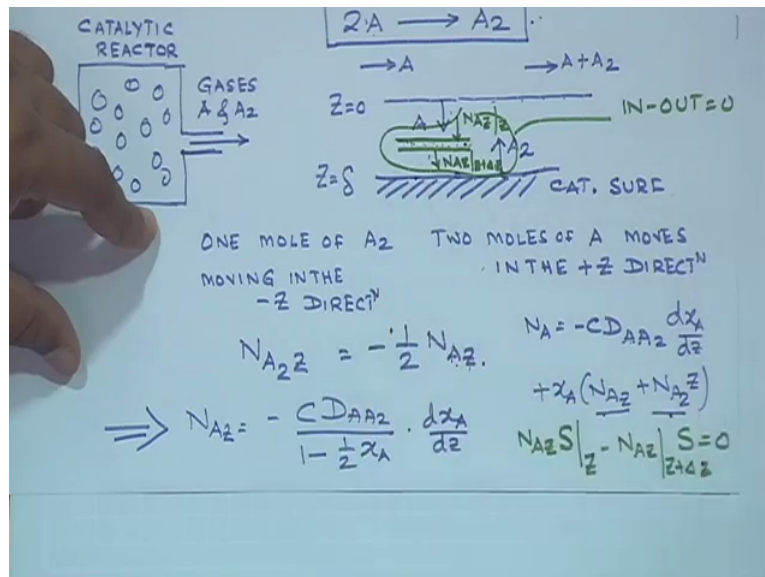 CATALYTIC
REACTOR
GASES
A & A2
2A ⟶ A2
→A →A+A2
Z=0
A↓ NAZ|Z
IN-OUT=0
↓NAZ|Z+ΔZ ↑A2
Z=δ
CAT. SURF
ONE MOLE OF A2
MOVING IN THE
-Z DIRECTᴺ
TWO MOLES OF A MOVES
IN THE +Z DIRECTᴺ
N_{A2Z} = -1/2 N_{AZ}.
N_A = -C D_{AA2} dx_A/dz
+x_A(N_{AZ} + N_{A2}Z)
⟹ N_{AZ} = - C D_{AA2}/(1 - 1/2 x_A) · dx_A/dz
N_{AZ}S|_Z - N_{AZ}|_{Z+ΔZ} S=0